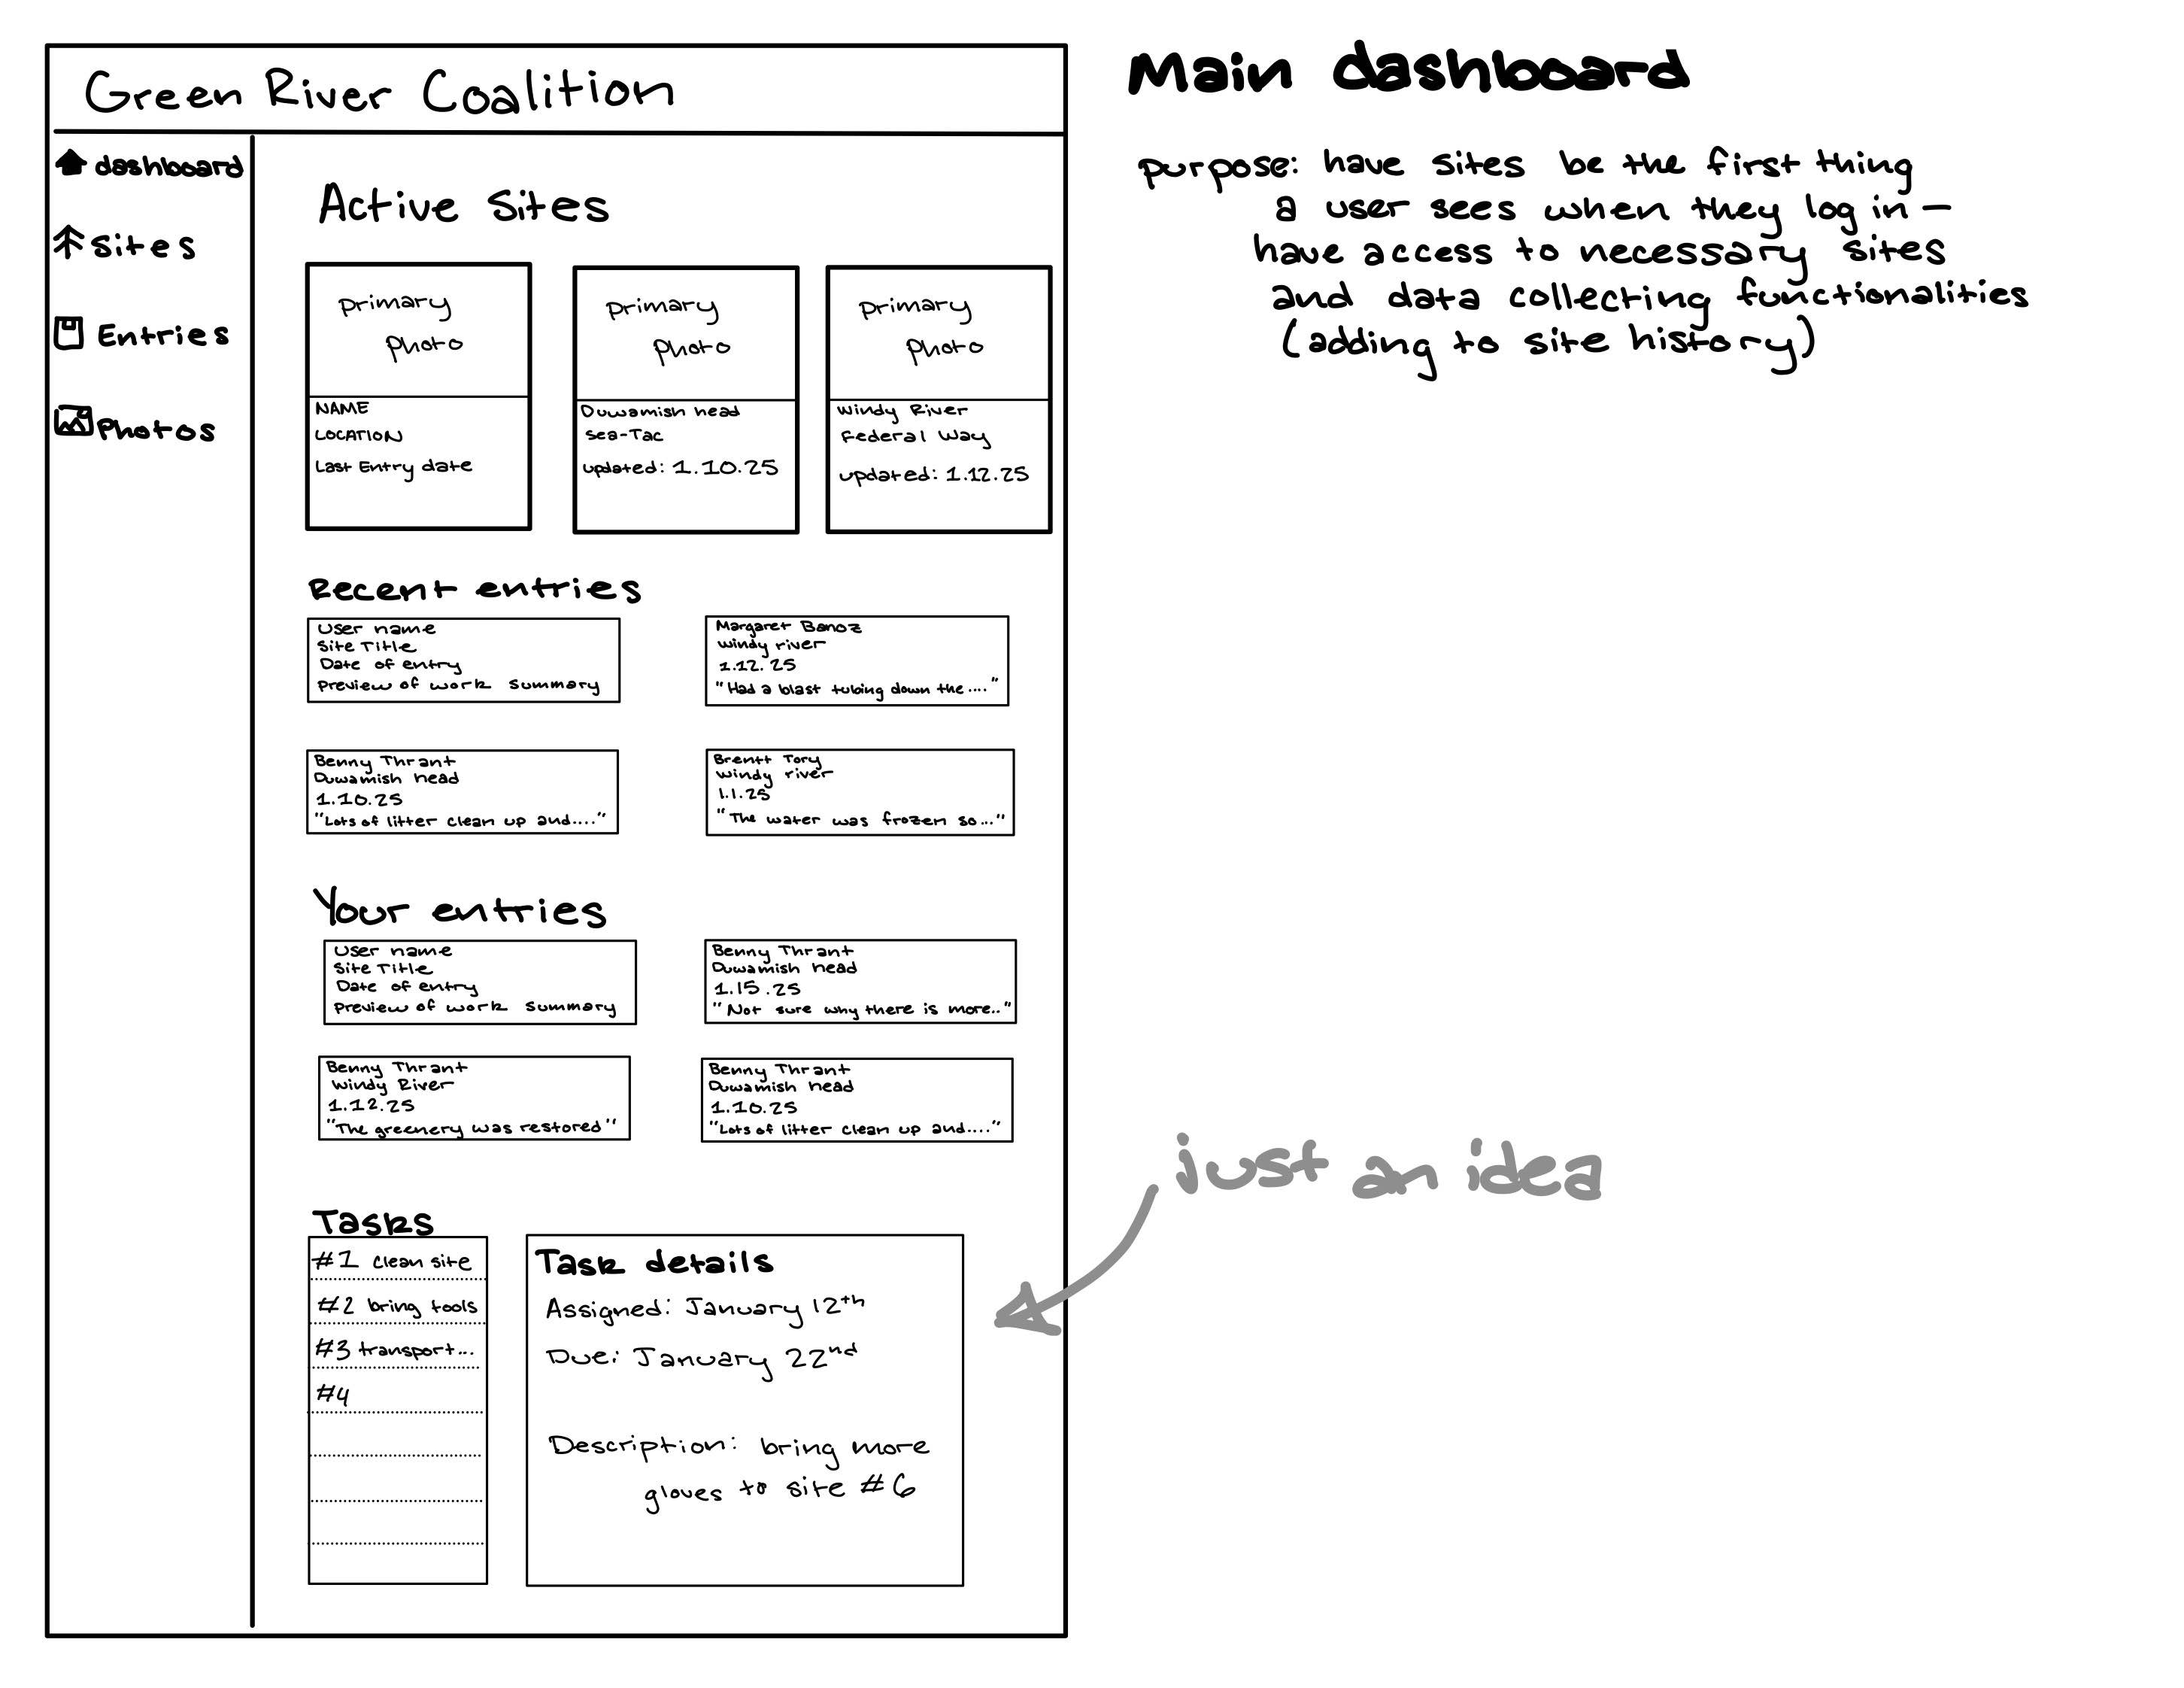 Green River Coalition
dashboard
Sites
Entries
Photos
Active Sites
primary
photo
NAME
LOCATION
Last Entry date
primary
photo
Duwamish head
Sea-Tac
updated: 1.10.25
primary
photo
Windy River
Federal Way
updated: 1.12.25
Recent entries
User name
Site Title
Date of entry
Preview of work summary
Margaret Banoz
windy river
1.12.25
"Had a blast tubing down the...."
Benny Thrant
Duwamish head
1.10.25
"Lots of litter clean up and...."
Brentt Tory
windy river
1.1.25
"The water was frozen so..."
Your entries
User name
Site Title
Date of entry
Preview of work summary
Benny Thrant
Duwamish head
1.15.25
"Not sure why there is more.."
Benny Thrant
Windy River
1.12.25
"The greenery was restored"
Benny Thrant
Duwamish head
1.10.25
"Lots of litter clean up and...."
Tasks
#1 clean site
#2 bring tools
#3 transport...
#4
Task details
Assigned: January 12th
Due: January 22nd
Description: bring more
gloves to site #6
Main dashboard
purpose: have sites be the first thing
a user sees when they log in -
have access to necessary sites
and data collecting functionalities
(adding to site history)
just an idea